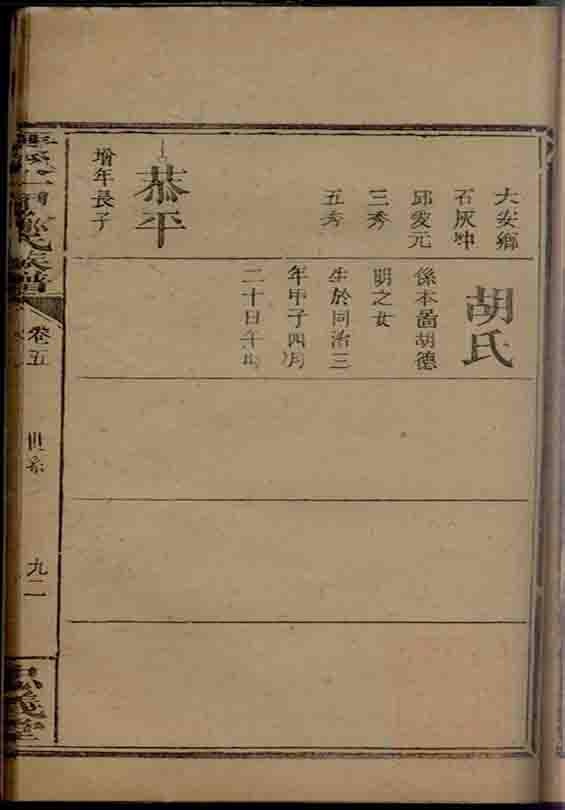 大安鄉
石灰冲
邱愛元
三秀
五秀
恭平
增年長子
胡氏
係本啚胡德
明之女
生於同治三
年甲子四月
二十日午時
氏族譜
卷五
世系
九二
堂